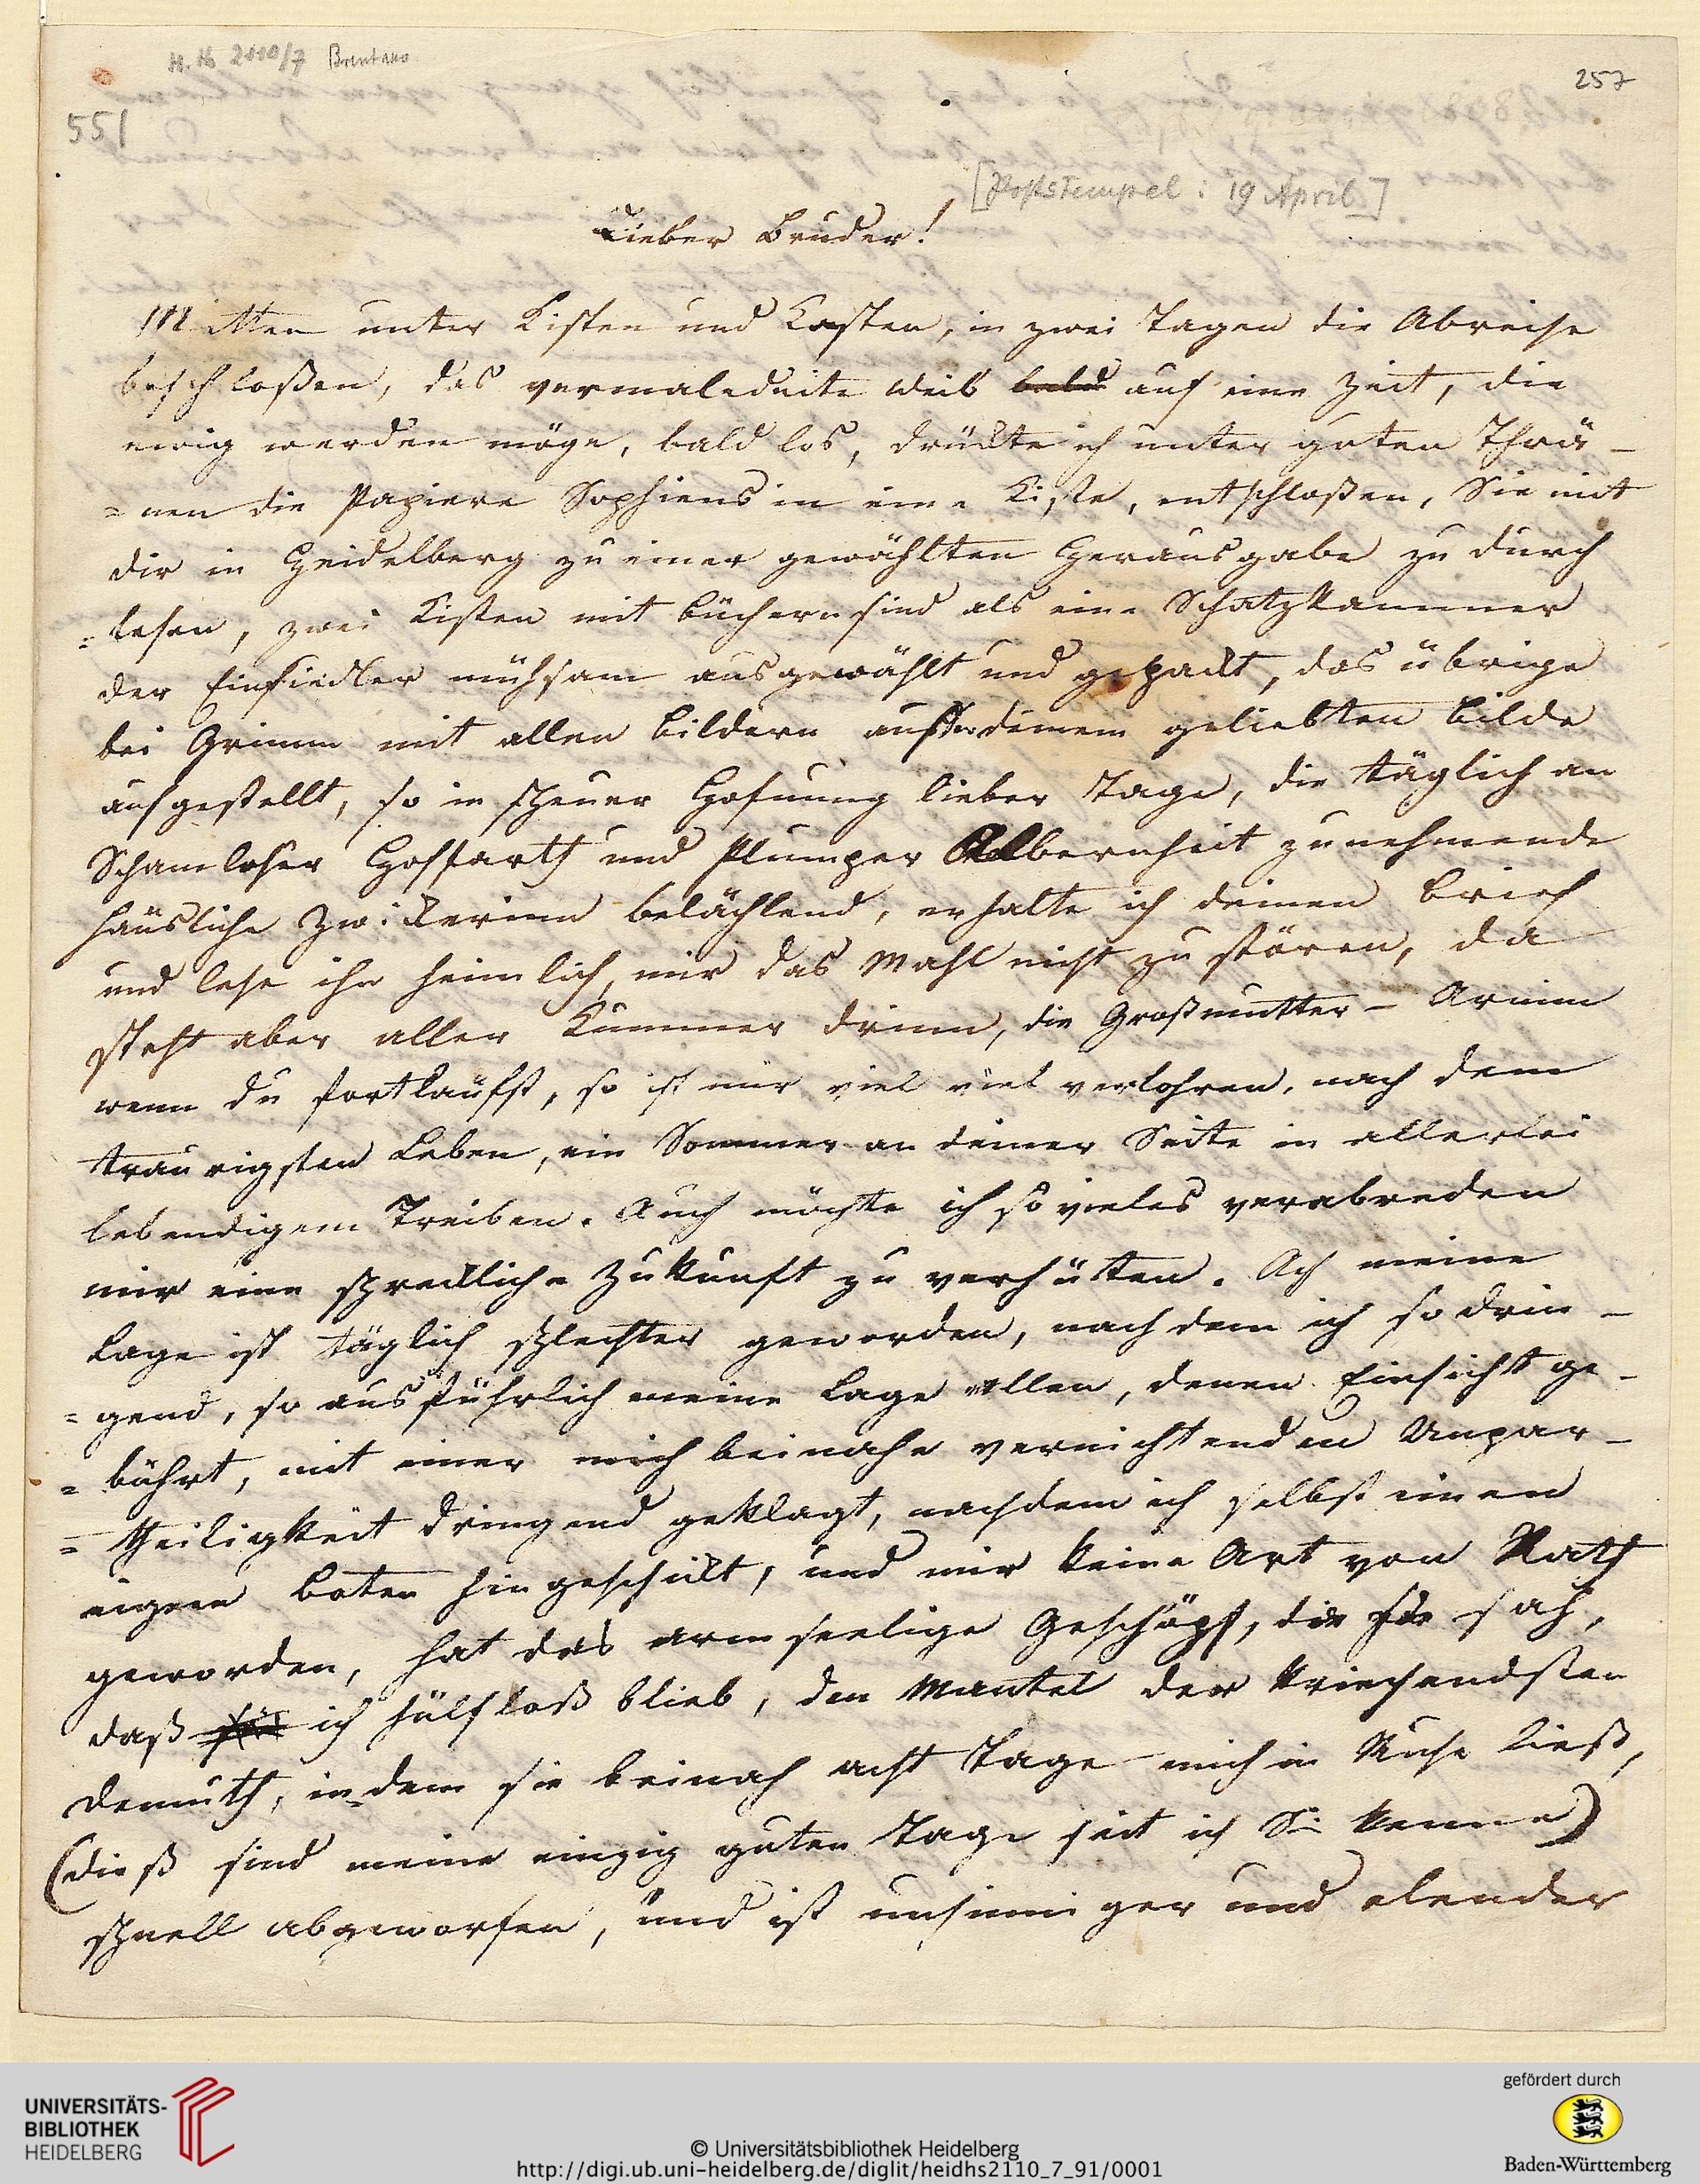 H. Hs 2110/7 Brentano
257
551
[Poststempel: 19 April]
Lieber Bruder!
Mitten unter Kisten und Kasten, in zwei Tagen die Abreise
beschloßen, das vermaledeite Weib bald auf eine Zeit, die
ewig werden möge, bald los, drückte ich unter guten Thrä-
=nen die Papiere Sophiens in eine Kiste, entschloßen, Sie mit
dir in Heidelberg zu einer gewählten Herausgabe zu durch
=lesen, zwei Kisten mit Büchern sind als eine Schatzkammer
der Einsiedler mühsam ausgewählt und gepackt, das übrige
bei Grimm mit allen Bildern außer deinem geliebten Bilde
aufgestellt, so in scheuer Hofnung lieber Tage, die täglich an
Schamloser Hoffarth und Plumper Albernheit zunehmende
häusliche Zwickerinn belächlend, erhalte ich deinen Brief
und lese ihn heimlich, mir das Mahl nicht zu stören, da
steht aber aller Kummer drinn, die Großmutter – Arnim
wenn du fortläufst, so ist mir viel viel verlohren, nach dem
traurigsten Leben, ein Sommer an deiner Seite in allerlei
lebendigem Treiben. Auch möchte ich so vieles verabreden
mir eine schreckliche Zukunft zu verhüten. Ach meine
Lage ist täglich schlechter geworden, nach dem ich so drin-
=gend, so ausführlich meine Lage allen, denen Einsicht ge-
=bührt, mit einer mich beinahe vernichtenden Unpar-
=theiligkeit dringend geklagt, nachdem ich selbst einen
eignen Boten hingeschickt, und mir keine Art von Rath
geworden, hat das armseelige Geschöpf, die sah,
daß ich hülfloß blieb, den Mantel der kriechendsten
Demuth, in dem sie beinah acht Tage mich in Ruhe ließ,
(dieß sind meine einzig guten Tage seit ich Sie kenne)
schnell abgeworfen, und ist unsinniger und elender
UNIVERSITÄTS-
BIBLIOTHEK
HEIDELBERG
© Universitätsbibliothek Heidelberg
http://digi.ub.uni-heidelberg.de/diglit/heidhs2110_7_91/0001
gefördert durch
Baden-Württemberg